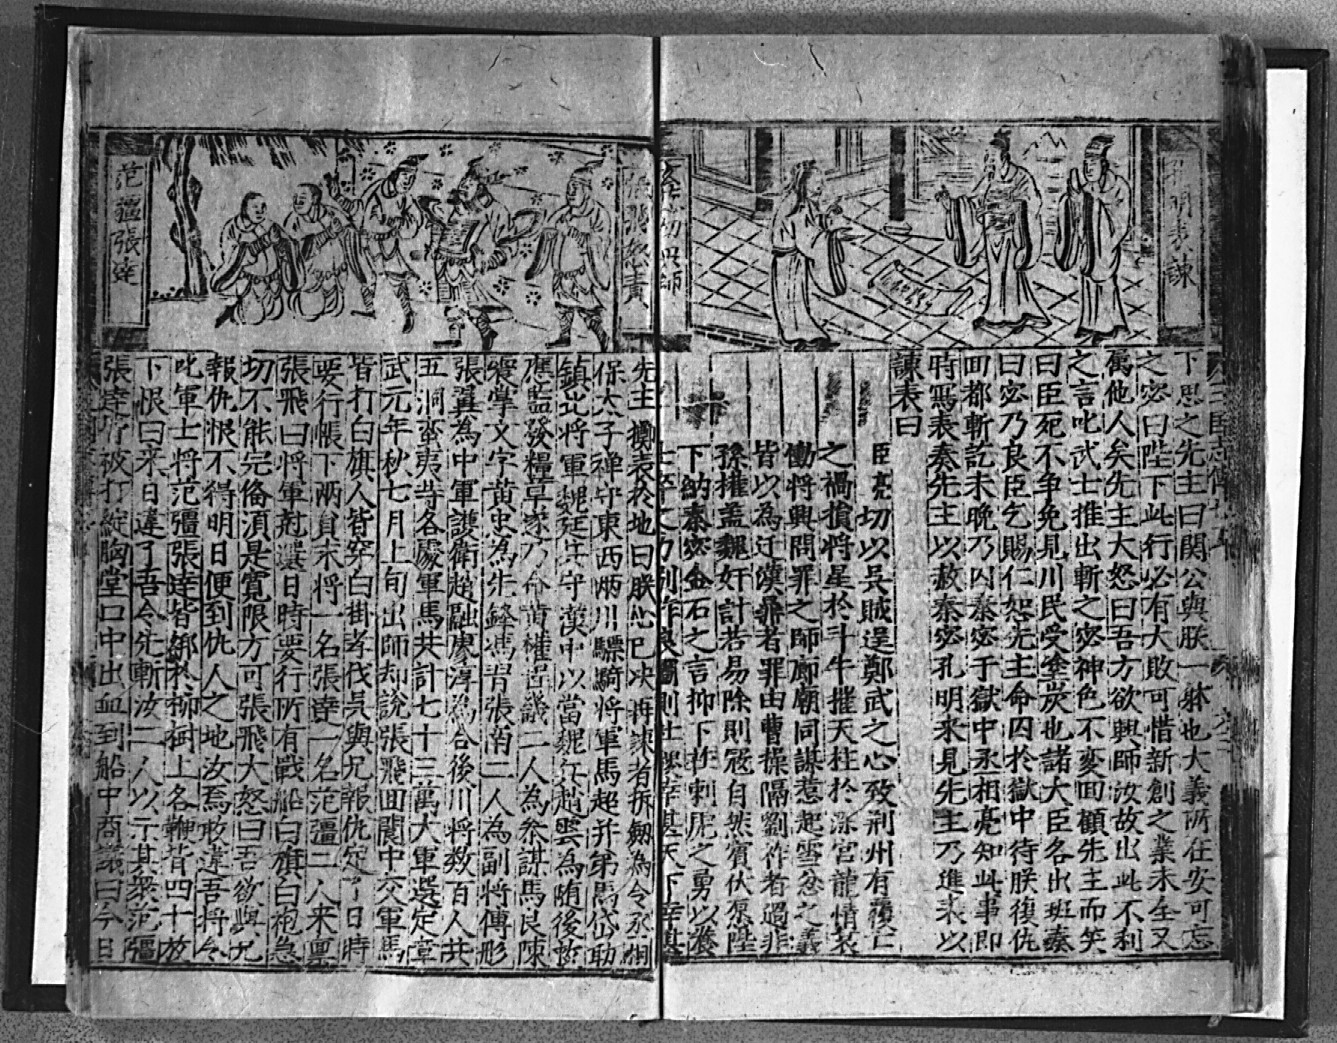 孔明表諫
下思之先主曰関公與朕一躰也大義所在安可忘
之宓曰陛下此行必有大敗可惜新創之業未全又
属他人矣先主大怒曰吾方欲興師汝故出此不利
之言叱武士推出斬之宓神色不変面顧先主而笑
曰臣死不争免見川民受塗炭也諸大臣各出班奏
曰宓乃良臣乞賜仁恕先主命囚於獄中待朕復仇
回都斬訖未晚乃囚秦宓于獄中丞相亮知此事即
時寫表奏先主以救秦宓孔明来見先主乃進表以
諫表曰
臣亮切以吳賊逞鄭武之心致荆州有覆亡
之禍損將星於斗牛摧天柱於
慟將興問罪之師廊廟同謀惹起雪忿之義
皆以為迁漢鼎者罪由曹操隔劉祚者過非
孫權盖魏奸計若易除則冦自然賓伏愿陛
下納秦宓金石之言抑下莊刺虎之勇以養
士卒之力
張飛怒責
范彊張達
先主擲表於地曰朕心已决再諫者拆劒為令丞相
保太子禪守東西兩川驃騎将軍馬超并弟馬岱助
鎮北将軍魏延共守漢中以當魏兵趙雲為随後
應監發糧草遂乃命黄權程畿二人為参謀馬良陳
震掌文字黄忠為先鋒馮習張南二人為副将傅彤
張翼為中軍護衛趙融廖淳為合後川将数百人共
五洞蛮夷等各處軍馬共計七十三萬大軍選定章
武元年秋七月上旬出師却說張飛回閬中交軍馬
皆打白旗人皆穿白掛孝伐吳與兄報仇定了日時
要行帳下两員末将一名張達一名范彊二人来禀
張飛曰将軍尅選日時要行所有戰船白旗白袍急
切不能完俻湏是寛限方可張飛大怒曰吾欲與兄
報仇恨不得明日便到仇人之地汝焉敢違吾将令
叱軍士将范彊張達皆綁於柳樹上各鞭背四十放
下恨曰来日違了吾令先斬汝二人以示其衆范彊
張達所被打綻胸堂口中出血到船中商議曰今日